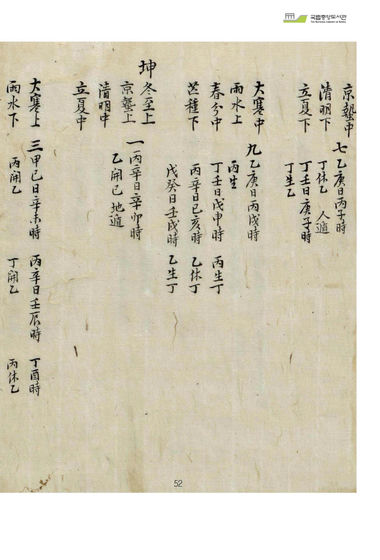 국립중앙도서관
京蟄中
清明下
立夏下
七乙庚日丙子時
丁休乙 人遁
丁壬日庚子時
丁生乙
大寒中
雨水上
春分中
芒種下
九乙庚日丙戌時
丙生
丁壬日戊申時 丙生丁
丙辛日己亥時 乙休丁
戊癸日壬戌時 乙生丁
坤
冬至上
京蟄上
清明中
立夏中
一丙辛日辛卯時
乙開己 地遁
大寒上
雨水下
三甲己日辛未時 丙辛日壬辰時 丁酉時
丙開乙 丁開乙 丙休乙
52